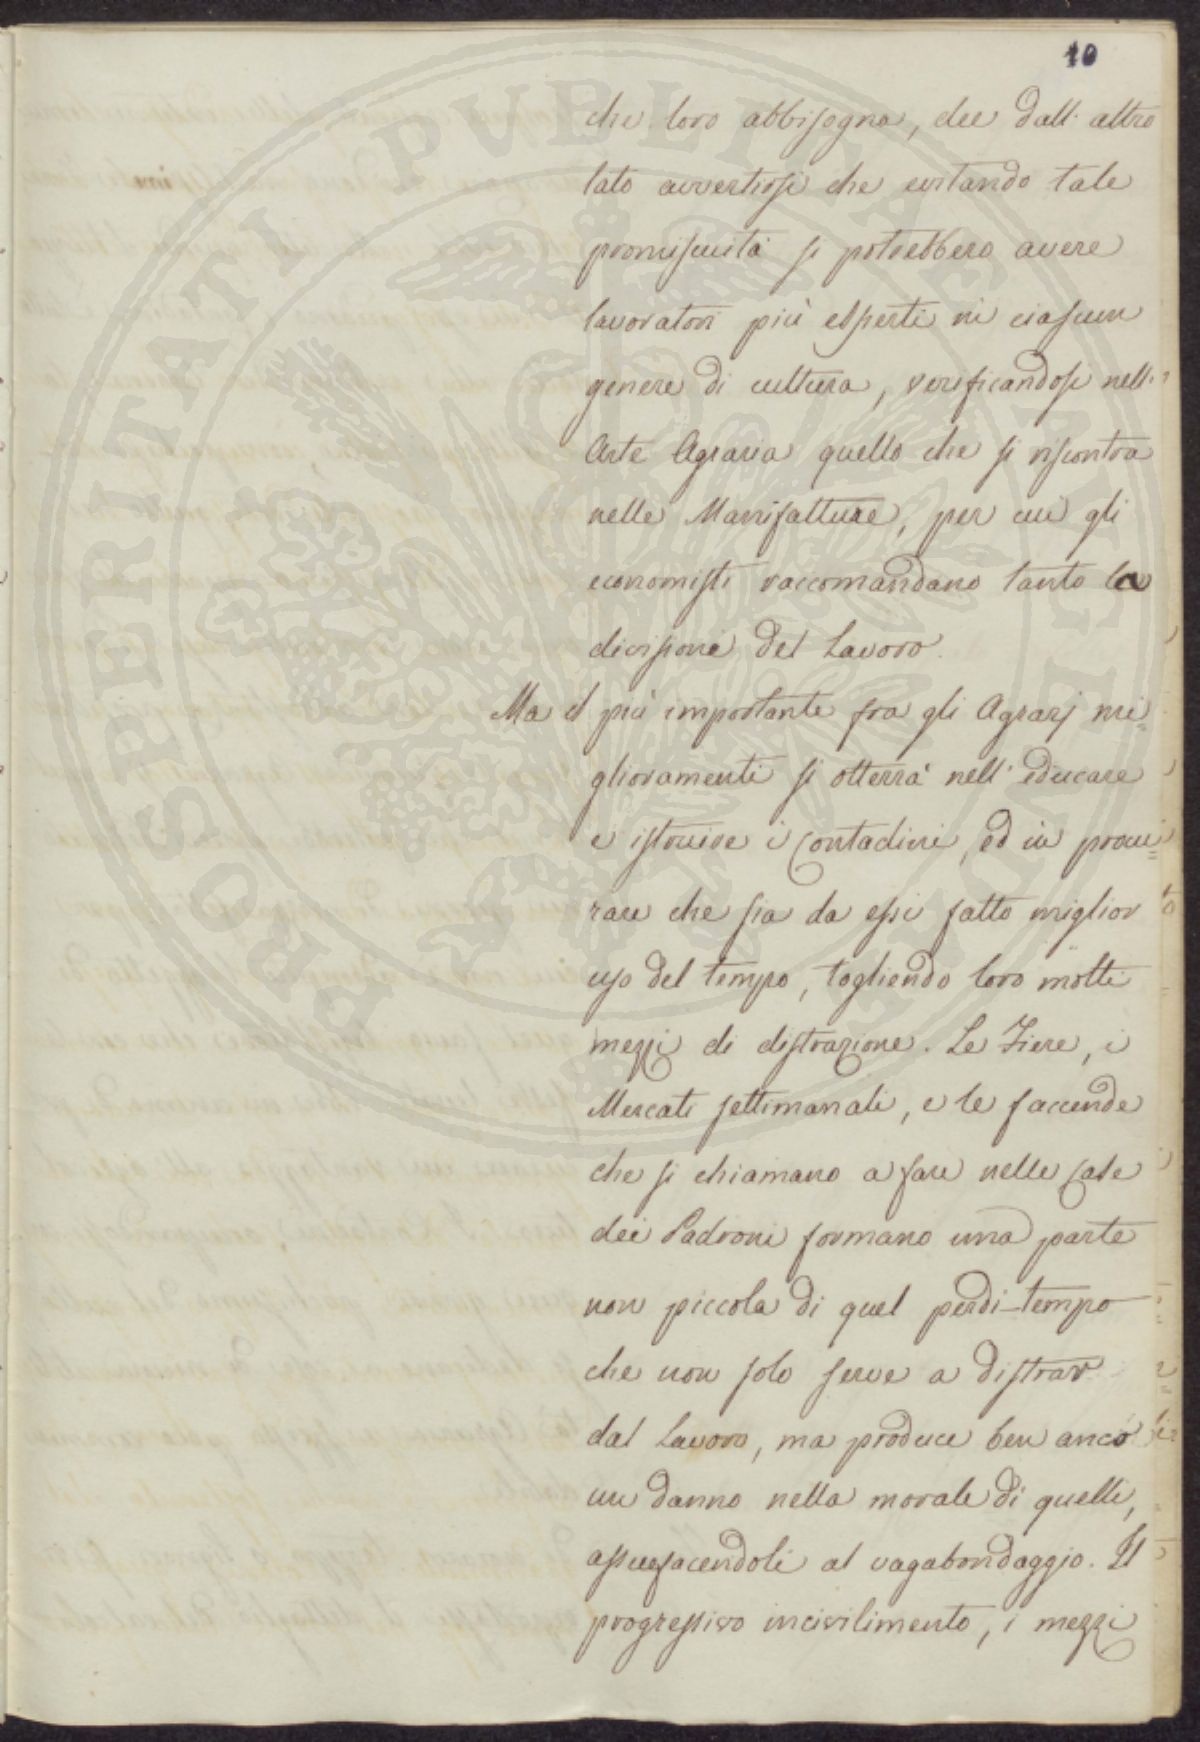 10
che loro abbisogna, dee dall'altro
lato avvertirsi che evitando tale
promiscuità si potrebbero avere
lavoratori più esperti in ciascun
genere di cultura, verificandosi nell'
Arte Agraria quello che si riscontra
nelle Manifatture, per cui gli
economisti raccomandano tanto la
divisione del Lavoro.
Ma il più importante fra gli Agrarj mi=
glioramenti si otterrà nell'educare
e istruire i Contadini, ed in procu=
rare che sia da essi fatto miglior
uso del tempo, togliendo loro molti
mezzi di distrazione. Le Fiere, i
Mercati settimanali, e le faccende
che si chiamano a fare nelle Case
dei Padroni formano una parte
non piccola di quel perdi-tempo
che non solo serve a distrar
dal Lavoro, ma produce ben anco
un danno nella morale di quelli,
assuefacendoli al vagabondaggio. Il
progressivo incivilimento, i mezzi
PROSPERITATI PUBLICAE